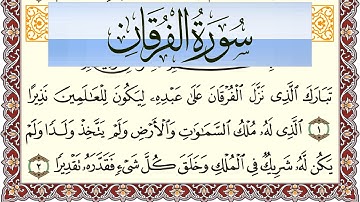 سُورَةُ الْفُرْقَانِ
تَبَارَكَ الَّذِي نَزَّلَ الْفُرْقَانَ عَلَىٰ عَبْدِهِ لِيَكُونَ لِلْعَالَمِينَ نَذِيرًا
١ الَّذِي لَهُ مُلْكُ السَّمَاوَاتِ وَالْأَرْضِ وَلَمْ يَتَّخِذْ وَلَدًا وَلَمْ
يَكُن لَّهُ شَرِيكٌ فِي الْمُلْكِ وَخَلَقَ كُلَّ شَيْءٍ فَقَدَّرَهُ تَقْدِيرًا ٢